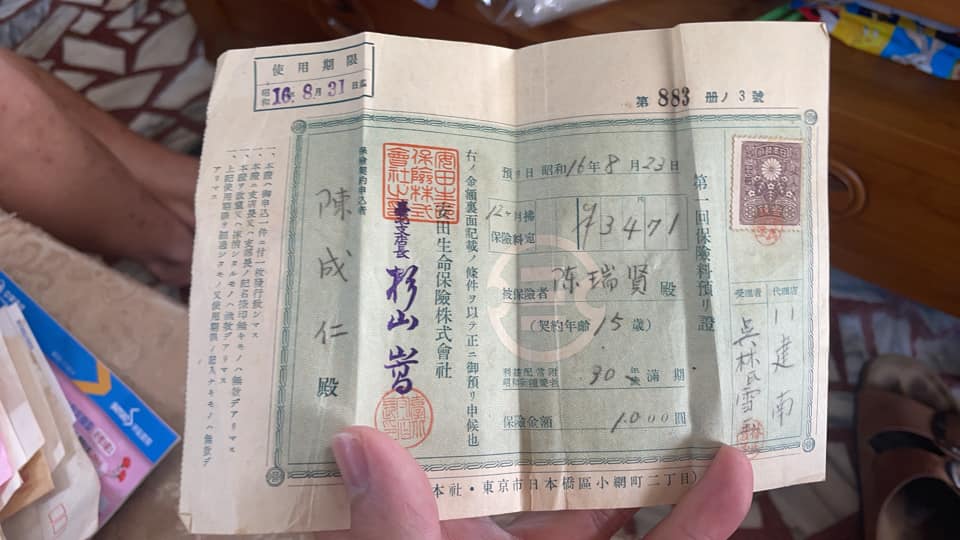 使用期限
昭和16年8月31日迄
第 883 冊ノ 3 號
代理店 建南
受理者 吳林氏雪
第一回保險料預リ證
預リ日 昭和16年8月23日
12ヶ月拂
保險料壹 93471
被保險者 陈瑞賢 殿
(契約年齡 15 歲)
30年満期
保險金額 1,000圓
右ノ金額裏面記載ノ條件ヲ以テ正ニ御預リ申候也
安田生命保險株式會社
支店長 杉山嵩
保險契約申込者
陳成仁殿
一、本證ハ御申込一件ニ付一枚發行致シマス
一、本證ニ支店長又ハ支部長ノ記名捺印無キモノハ無效デアリマス
一、本證ヲ改竄又ハ抹消シタルモノハ無效デアリマス
一、上記使用期限ヲ經過シタルモノ又使用期限ノ記入ナキモノハ無效デアリマス
本社・東京市日本橋區小網町二丁目)